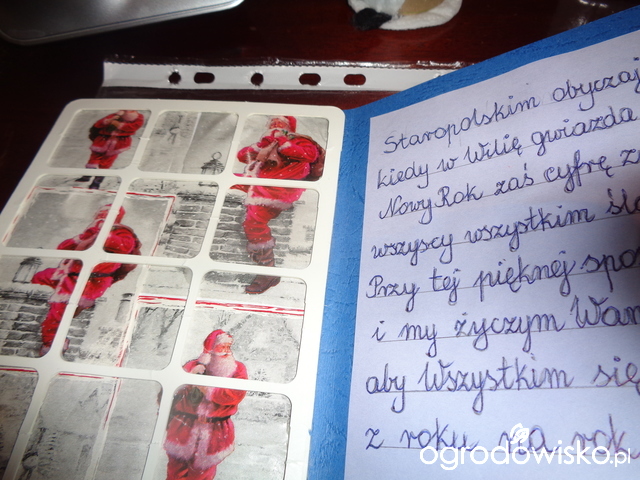 Staropolskim obyczaj
kiedy w Wilię gwiazda
Nowy Rok zaś cyfrę z
wszyscy wszystkim
Przy tej pięknej
i my życzym Wam
aby Wszystkim się
z roku na rok
ogrodowisko.pl